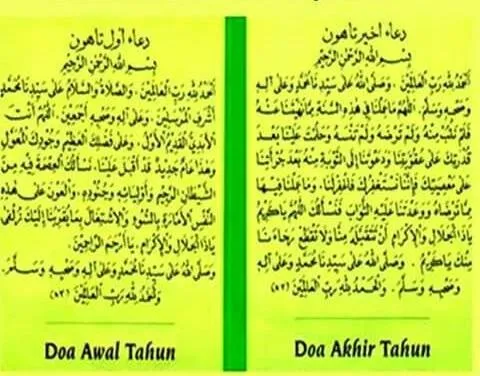 دعاء اول تاهون
بِسْمِ اللهِ الرَّحْمٰنِ الرَّحِيْمِ
اَلْحَمْدُ لِلّٰهِ رَبِّ الْعَالَمِيْنَ . وَالصَّلَاةُ وَالسَّلَامُ عَلَى سَيِّدِنَا مُحَمَّدٍ
أَشْرَفِ الْمُرْسَلِيْنَ . وَعَلَى آلِهِ وَصَحْبِهِ أَجْمَعِيْنَ . اَللّٰهُمَّ أَنْتَ
الْأَبَدِيُّ الْقَدِيْمُ الْأَوَّلُ . وَعَلَى فَضْلِكَ الْعَظِيْمِ وَجُوْدِكَ الْمُعَوَّلُ
وَهٰذَا عَامٌ جَدِيْدٌ قَدْ أَقْبَلَ عَلَيْنَا . نَسْأَلُكَ الْعِصْمَةَ فِيْهِ مِنَ
الشَّيْطَانِ الرَّجِيْمِ وَأَوْلِيَائِهِ وَجُنُوْدِهِ . وَالْعَوْنَ عَلَى هٰذِهِ
النَّفْسِ الْأَمَّارَةِ بِالسُّوْءِ وَالْاِشْتِغَالِ بِمَا يُقَرِّبُنَا إِلَيْكَ زُلْفَى
يَاذَا الْجَلَالِ وَالْإِكْرَامِ . يَا أَرْحَمَ الرَّاحِمِيْنَ .
وَصَلَّى اللهُ عَلَى سَيِّدِنَا مُحَمَّدٍ وَعَلَى آلِهِ وَصَحْبِهِ وَسَلَّمَ .
وَالْحَمْدُ لِلّٰهِ رَبِّ الْعَالَمِيْنَ
Doa Awal Tahun
دعاء اخير تاهون
بِسْمِ اللهِ الرَّحْمٰنِ الرَّحِيْمِ
اَلْحَمْدُ لِلّٰهِ رَبِّ الْعَالَمِيْنَ . وَصَلَّى اللهُ عَلَى سَيِّدِنَا مُحَمَّدٍ وَعَلَى آلِهِ
وَصَحْبِهِ وَسَلَّمَ . اَللّٰهُمَّ مَا عَمِلْنَا فِي هٰذِهِ السَّنَةِ مِمَّا نَهَيْتَنَا عَنْهُ
فَلَمْ نَتُبْ مِنْهُ وَلَمْ تَرْضَهُ وَلَمْ تَنْسَهُ وَحَلُمْتَ عَلَيْنَا بَعْدَ
قُدْرَتِكَ عَلَى عُقُوْبَتِنَا وَدَعَوْتَنَا إِلَى التَّوْبَةِ مِنْهُ بَعْدَ جَرَأَتِنَا
عَلَى مَعْصِيَتِكَ فَإِنَّا نَسْتَغْفِرُكَ فَاغْفِرْ لَنَا . وَمَا عَمِلْنَا فِيْهَا
مِمَّا تَرْضَاهُ وَوَعَدْتَنَا عَلَيْهِ الثَّوَابَ فَنَسْأَلُكَ اللّٰهُمَّ يَا كَرِيْمُ
يَا ذَا الْجَلَالِ وَالْإِكْرَامِ أَنْ تَتَقَبَّلَهُ مِنَّا وَلَا تَقْطَعْ رَجَاءَنَا
مِنْكَ يَا كَرِيْمُ . وَصَلَّى اللهُ عَلَى سَيِّدِنَا مُحَمَّدٍ وَعَلَى آلِهِ
وَصَحْبِهِ وَسَلَّمَ . وَالْحَمْدُ لِلّٰهِ رَبِّ الْعَالَمِيْنَ
Doa Akhir Tahun